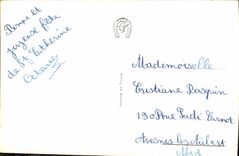 Bonne et
Joyeuse fête
de Ste Catherine
Octavie
Mademoiselle
Cristiane Basquin
130 Rue Sadi Carnot
Avesnes les Aubert
Nord